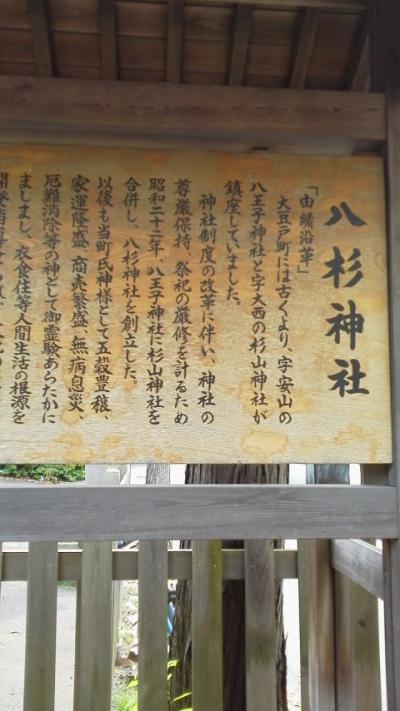 八杉神社
「由緒沿革」
大豆戸町には古くより、字安山の
八王子神社と字大西の杉山神社が
鎮座していました。
神社制度の改革に伴い、神社の
尊厳保持、祭祀の厳修を計るため
昭和二十三年、八王子神社に杉山神社を
合併し、八杉神社を創立した。
以後も当町氏神様として五穀豊穣、
家運隆盛、商売繁盛、無病息災、
厄難消除等の神として御霊験あらたかに
ましまし、衣食住等人間生活の根源を